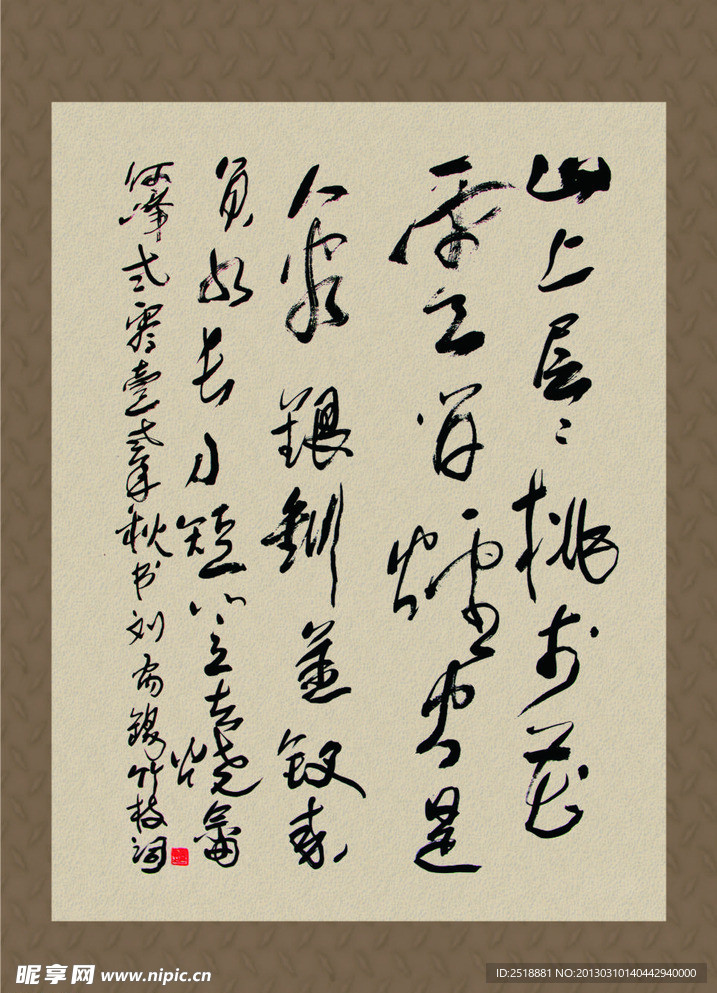 山上层々桃李花
雲间煙火是
人家銀釧金釵来
负水长刀短笠去烧畬
何峰弍零壹弍年秋书刘禹锡竹枝词
昵享网 www.nipic.cn
ID:2518881 NO:20130310140442940000